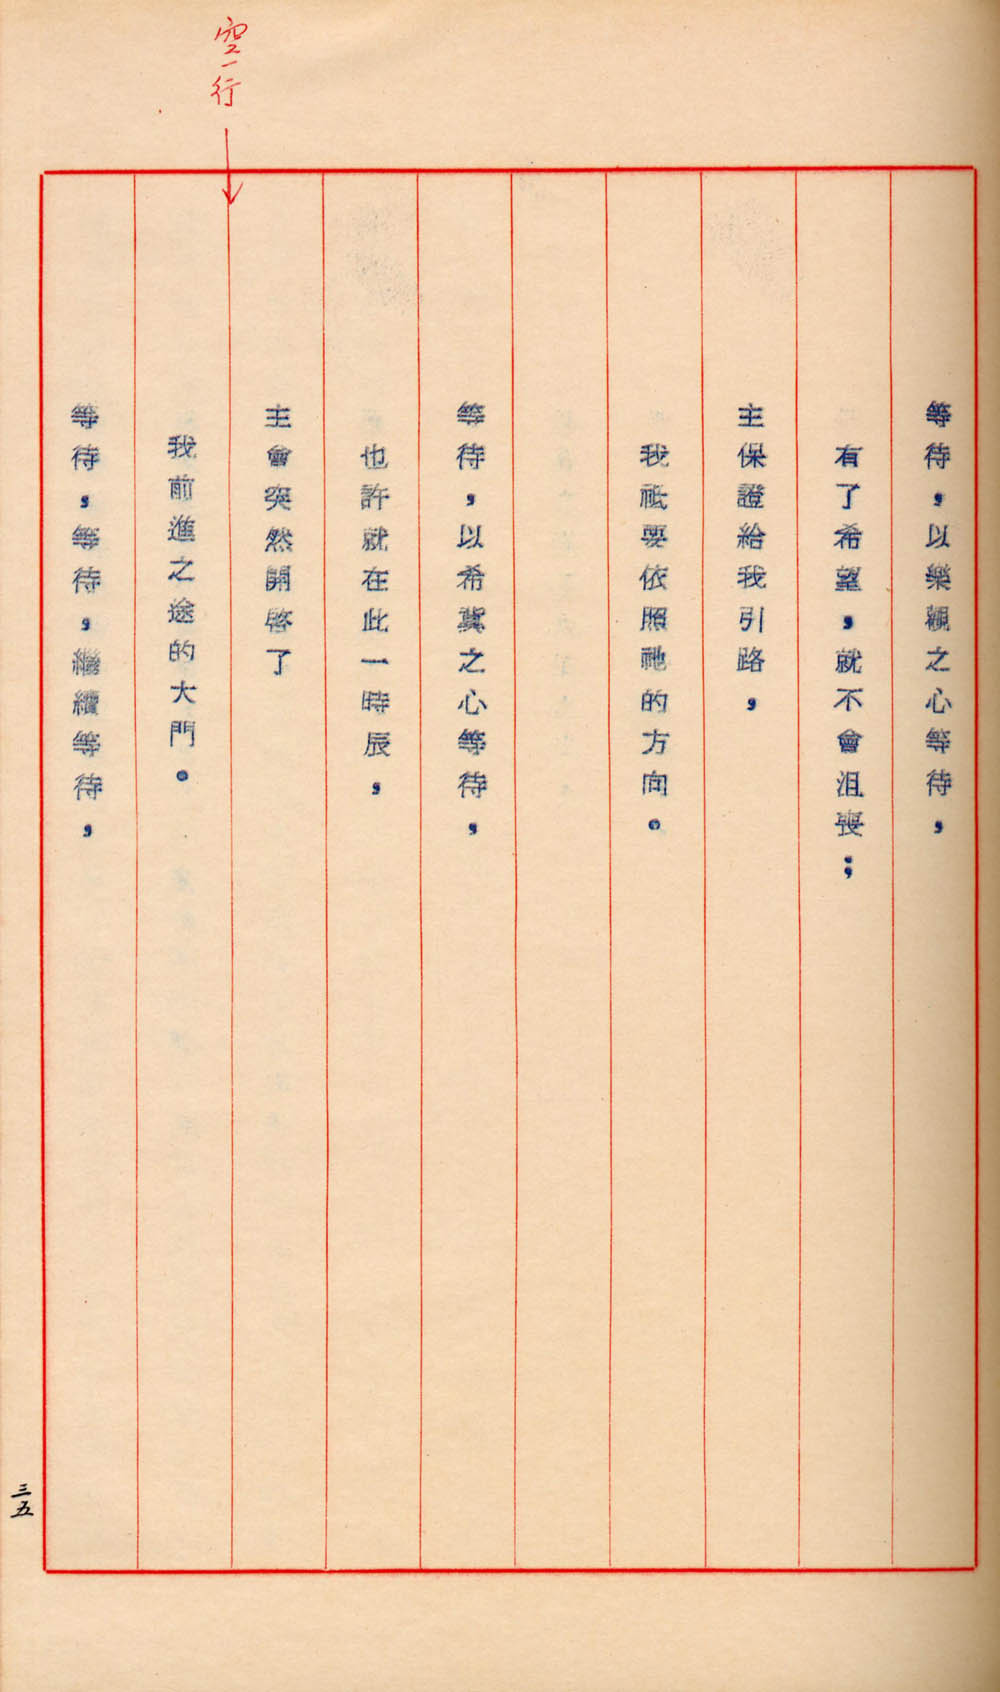 空一行
等待，以樂觀之心等待，
有了希望，就不會沮喪；
主保證給我引路，
我祗要依照祂的方向。
等待，以希冀之心等待，
也許就在此一時辰，
主會突然開啓了
我前進之途的大門。
等待，等待，繼續等待，
三五